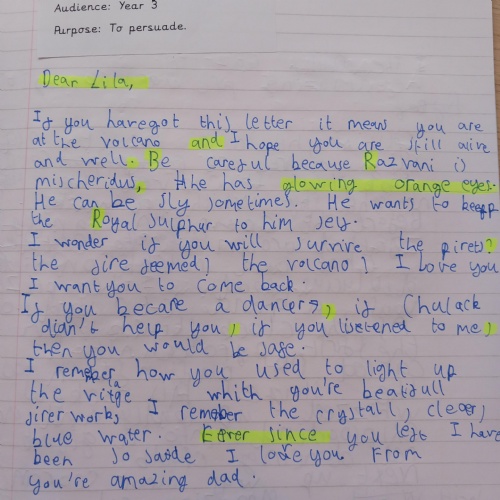 Audience: Year 3
Purpose: To persuade.
Dear Lila,
If you havegot this letter it means you are
at the volcano and I hope you are still alive
and well. Be careful because Razvani is
mischeridus, He has glowing orange eyes.
He can be sly sometimes. He wants to keep
the Royal sulphur to him self.
I wonder if you will survive the pirets?
the fire seemed? the volcano? I love you
I want you to come back.
If you became a dancer, if Chulack
didn't help you, if you listened to me,
then you would be safe.
I remember how you used to light up
the vilage which you're beatifull
firer works, I remember the crystall, clear,
blue water. Ever since you left I have
been so sad I love you. From
you're amazing dad.